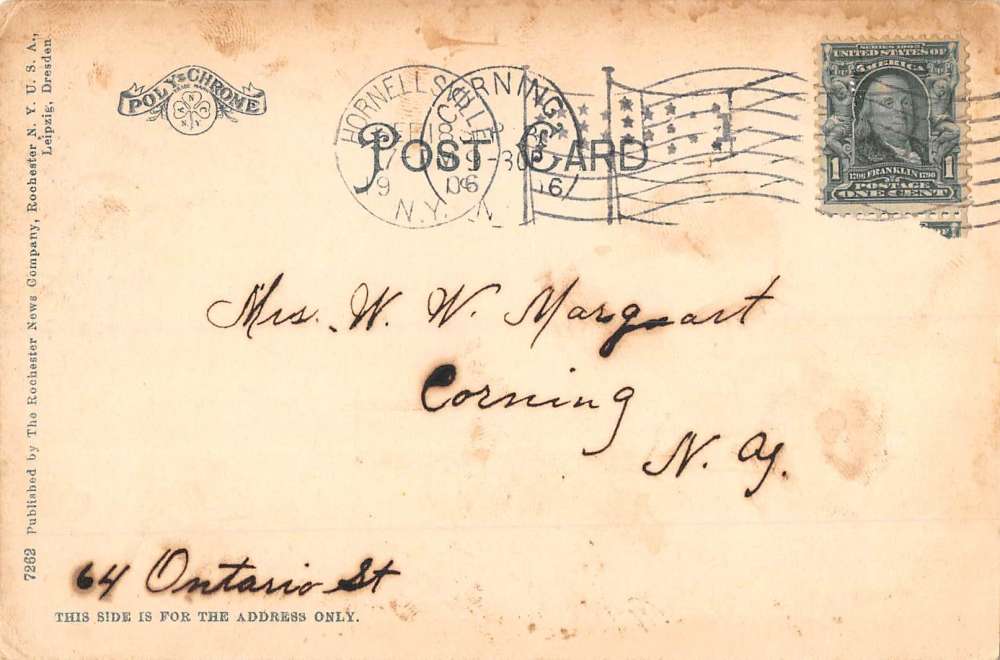 POLY-CHROME
N N Y
HORNELLSVILLE
CORNING
FEB 18
9-30P
1906
N.Y.
POST CARD
SERIES 1902
UNITED STATES OF
AMERICA
1 1706 FRANKLIN 1790 1
POSTAGE
ONE CENT
Mrs. W. W. Marquart
Corning
N. Y.
64 Ontario St
THIS SIDE IS FOR THE ADDRESS ONLY.
7262 Published by The Rochester News Company, Rochester N. Y. U. S. A.,
Leipzig, Dresden